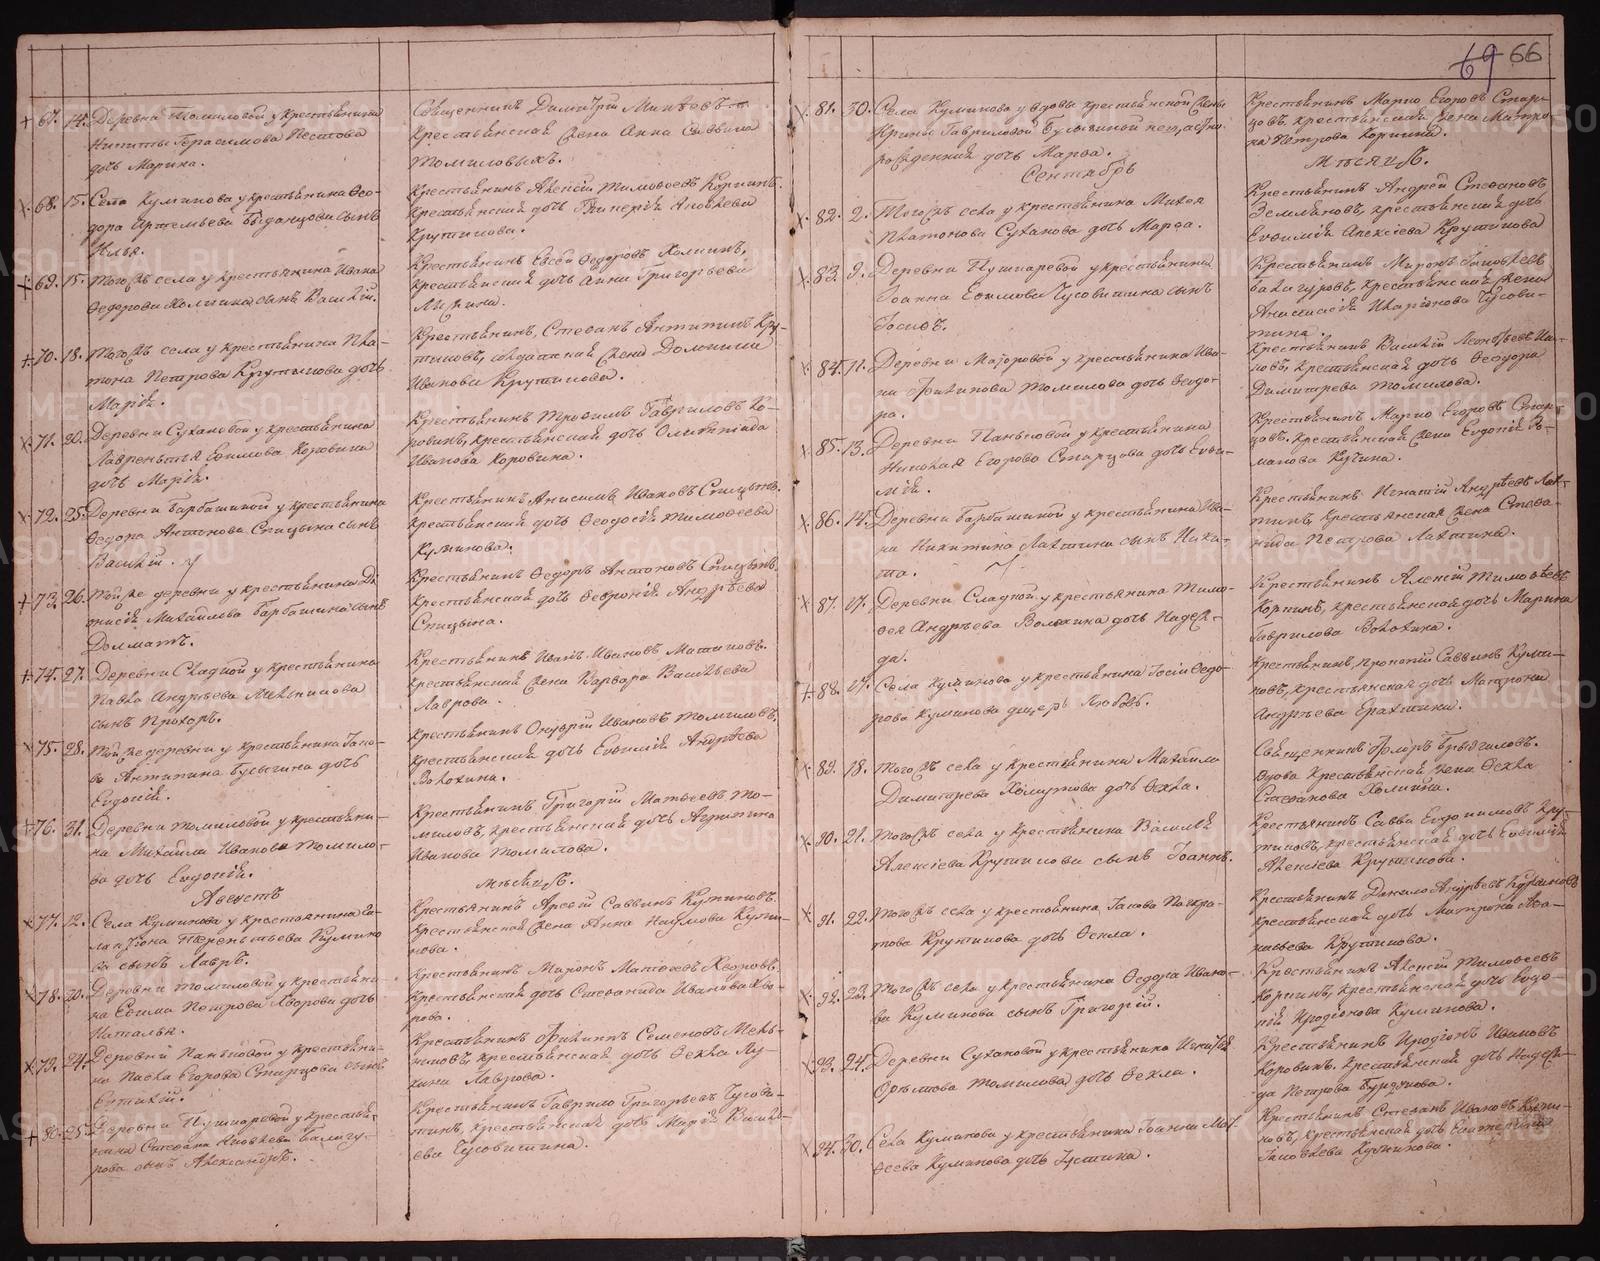 69 66
67. 14. Деревни Томиловой у крестьянина
Никиты Герасимова
дочь Марина.
Священникъ Димитрій
крестьянская жена Анна Саввина
Томиловыхъ.
68. 15. Села Куминова у крестьянина Ѳео-
дора Артемьева сынъ
Илья.
Крестьянинъ Алексій Тимоѳеевъ Коркинъ,
крестьянская дочь Яковлева
Крутикова.
69. 15. Тогожъ села у крестьянина Ивана
Ѳедорова Холкина сынъ Василій.
Крестьянинъ Евсей Ѳедоровъ Холкинъ,
крестьянская дочь Анна Григорьева
70. 18. Тогожъ села у крестьянина Пла-
тона Петрова Крутикова дочь
Марія.
Крестьянинъ Стефанъ Антипинъ Кру-
тиковъ, жена
Иванова Крутикова.
71. 20. Деревни Сухановой у крестьянина
Лаврентья Ефимова Коровина
дочь Марія.
Крестьянинъ Трофимъ Гавриловъ Ко-
ровинъ, крестьянская дочь Олимпіада
Иванова Коровина.
72. 25. Деревни Барбашиной у крестьянина
Ѳедора Антонова Спицына сынъ
Василій.
Крестьянинъ Анисимъ Ивановъ Спицынъ,
крестьянская дочь Ѳеодосія Тимоѳеева
Куминова.
73. 26. Тойже деревни у крестьянина Ді-
онисія Михайлова Барбашина сынъ
Долматъ.
Крестьянинъ Ѳедоръ Антоновъ Спицынъ,
крестьянская дочь Ѳефронія Андрѣева
Спицына.
74. 27. Деревни Сладкой у крестьянина
Павла Андрѣева
сынъ Прохоръ.
Крестьянинъ Иванъ Ивановъ
крестьянская жена Варвара Васильева
Лаврова.
75. 28. Тойже деревни у крестьянина Іако-
ва Антипина Бусыгина дочь
Евдокія.
Крестьянинъ Онуфрій Ивановъ Томиловъ,
крестьянская дочь Евфимія Андрѣева
Волохина.
76. 31. Деревни Томиловой у крестьяни-
на Михаила Иванова Томило-
ва дочь Евдокія.
Крестьянинъ Григорій Матвѣевъ То-
миловъ, крестьянская дочь
Иванова Томилова.
Августъ мѣсяцъ.
77. 12. Села Куминова у крестьянина Га-
Терентьева Кумино-
ва сынъ Лавръ.
Крестьянинъ Арефій Саввинъ
крестьянская жена Анна Наумова Куми-
нова.
78. 20. Деревни Томиловой у крестьяни-
на Ефима Петрова Яворова дочь
Наталья.
Крестьянинъ Миронъ
крестьянская дочь Стефанида Иванова
79. 24. Деревни Паньковой у крестьяни-
на Павла Егорова Старцова сынъ
Евтихій.
Крестьянинъ Филиппъ Семеновъ Мень-
шиковъ, крестьянская дочь Ѳекла Лу-
кина Лаврова.
80. 25. Деревни Пушкаревой у крестья-
нина Стефана Яковлева Балагу-
рова сынъ Александръ.
Крестьянинъ Гаврило Григорьевъ Чусови-
тинъ, крестьянская дочь Марія Василь-
ева Чусовитина.
81. 30. Села Куминова у вдовы крестьянской жены
Ирины Гавриловой Бусыгиной незаконно-
рожденная дочь Марѳа.
Крестьянинъ Марко Егоровъ Стар-
цовъ, крестьянская жена Матро-
на Петрова Коркина.
Сентябрь мѣсяцъ.
82. 2. Тогожъ села у крестьянина Михея
Платонова Суханова дочь Марѳа.
Крестьянинъ Андрей Стефановъ
Земляковъ, крестьянская дочь
Евфимія Алексіева Крутикова
83. 9. Деревни Пушкаревой у крестьянина
Іоанна Ефимова Чусовитина сынъ
Іосифъ.
Крестьянинъ Миронъ Іаковлевъ
Балагуровъ, крестьянская жена
Анастасія Иларіонова Чусови-
тина.
84. 11. Деревни Маіоровой у крестьянина Ива-
на Филипова Томилова дочь Ѳеодо-
ра.
Крестьянинъ Василій
крестьянская дочь Ѳеодора
Димитрева Томилова.
85. 13. Деревни Паньковой у крестьянина
Николая Егорова Старцова дочь Евфи-
мія.
Крестьянинъ Марко Егоровъ Стар-
цовъ, крестьянская жена Евдокія Ро-
манова Кучина.
86. 14. Деревни Барбашиной у крестьянина Ива-
на Никитина Лаптина сынъ Ники-
та.
Крестьянинъ Игнатій Андрѣевъ Лап-
тинъ, крестьянская жена Стефа-
нида Петрова Лаптина.
87. 17. Деревни Сладкой у крестьянина Тимо-
ѳея Андрѣева Волохина дочь Надеж-
да.
Крестьянинъ Алексій Тимоѳеевъ
Коркинъ, крестьянская дочь Марина
Гаврилова Волохина.
88. 17. Села Куминова у крестьянина Іосифа Ѳедо-
рова Куминова дщерь Любовь.
Крестьянинъ Прокопій Саввинъ Куми-
новъ, крестьянская дочь Матрона
Андрѣева
89. 18. Тогожъ села у крестьянина Михаила
Димитрева дочь Ѳекла.
Священникъ Флоръ
вдова крестьянская жена Ѳекла
Стефанова Холкина.
90. 21. Тогожъ села у крестьянина Василія
Алексіева Крутикова сынъ Іоаннъ.
Крестьянинъ Савва Евдокимовъ Кру-
тиковъ, крестьянская дочь Евфимія
Алексіева Крутикова.
91. 22. Тогожъ села у крестьянина Іакова Панкра-
това Крутикова дочь Ѳекла.
Крестьянинъ Данило Андрѣевъ
крестьянская дочь Матрона Аѳа-
насьева Крутикова.
92. 23. Тогожъ села у крестьянина Ѳедора Ивано-
ва Куминова сынъ Григорій.
Крестьянинъ Алексій Тимоѳеевъ
Коркинъ, крестьянская дочь Евдо-
кія Иродіонова Куминова.
93. 24. Деревни Сухановой у крестьянина Игнатія
Томилова дочь Ѳекла.
Крестьянинъ Иродіонъ Ивановъ
Коровинъ, крестьянская дочь Надеж-
да Петрова
94. 30. Села Куминова у крестьянина Іоанна Мат-
ѳеева Куминова дочь Іустина.
Крестьянинъ Стефанъ Ивановъ Куми-
новъ, крестьянская дочь Екатерина
Іаковлева Куминова.